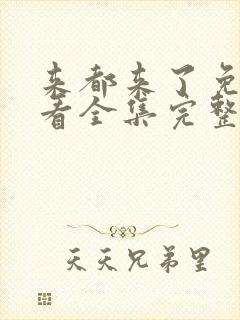 来都来了免
看全集完整
天天兄弟里